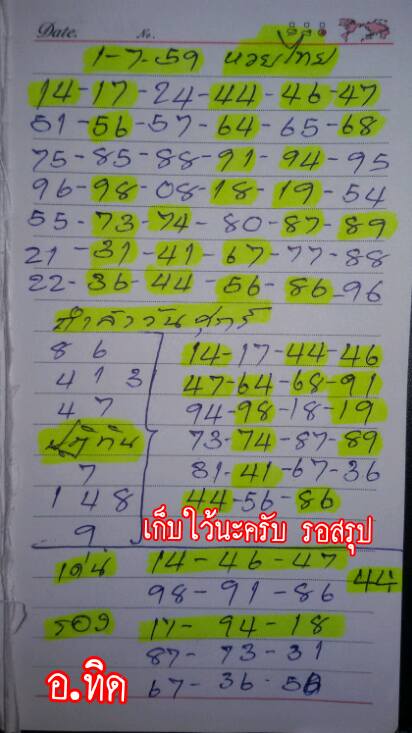 Date. No.
1-7-59 หวยไทย
14-17-24-44-46-47
51-56-57-64-65-68
75-85-88-91-94-95
96-98-08-18-19-54
55-73-74-80-87-89
21-31-41-67-77-88
22-36-44-56-86-96
กำลังวันศุกร์
8 6
4 1 3
4 7
ปฏิทิน
7
1 4 8
9
14-17-44-46
47-64-68-91
94-98-18-19
73-74-87-89
31-41-67-36
44-56-86
เก็บใว้นะครับ รอสรุป
เด่น 14-46-47
98-91-86
44
รอง 17-94-18
87-73-31
67-36-56
อ.ทิด